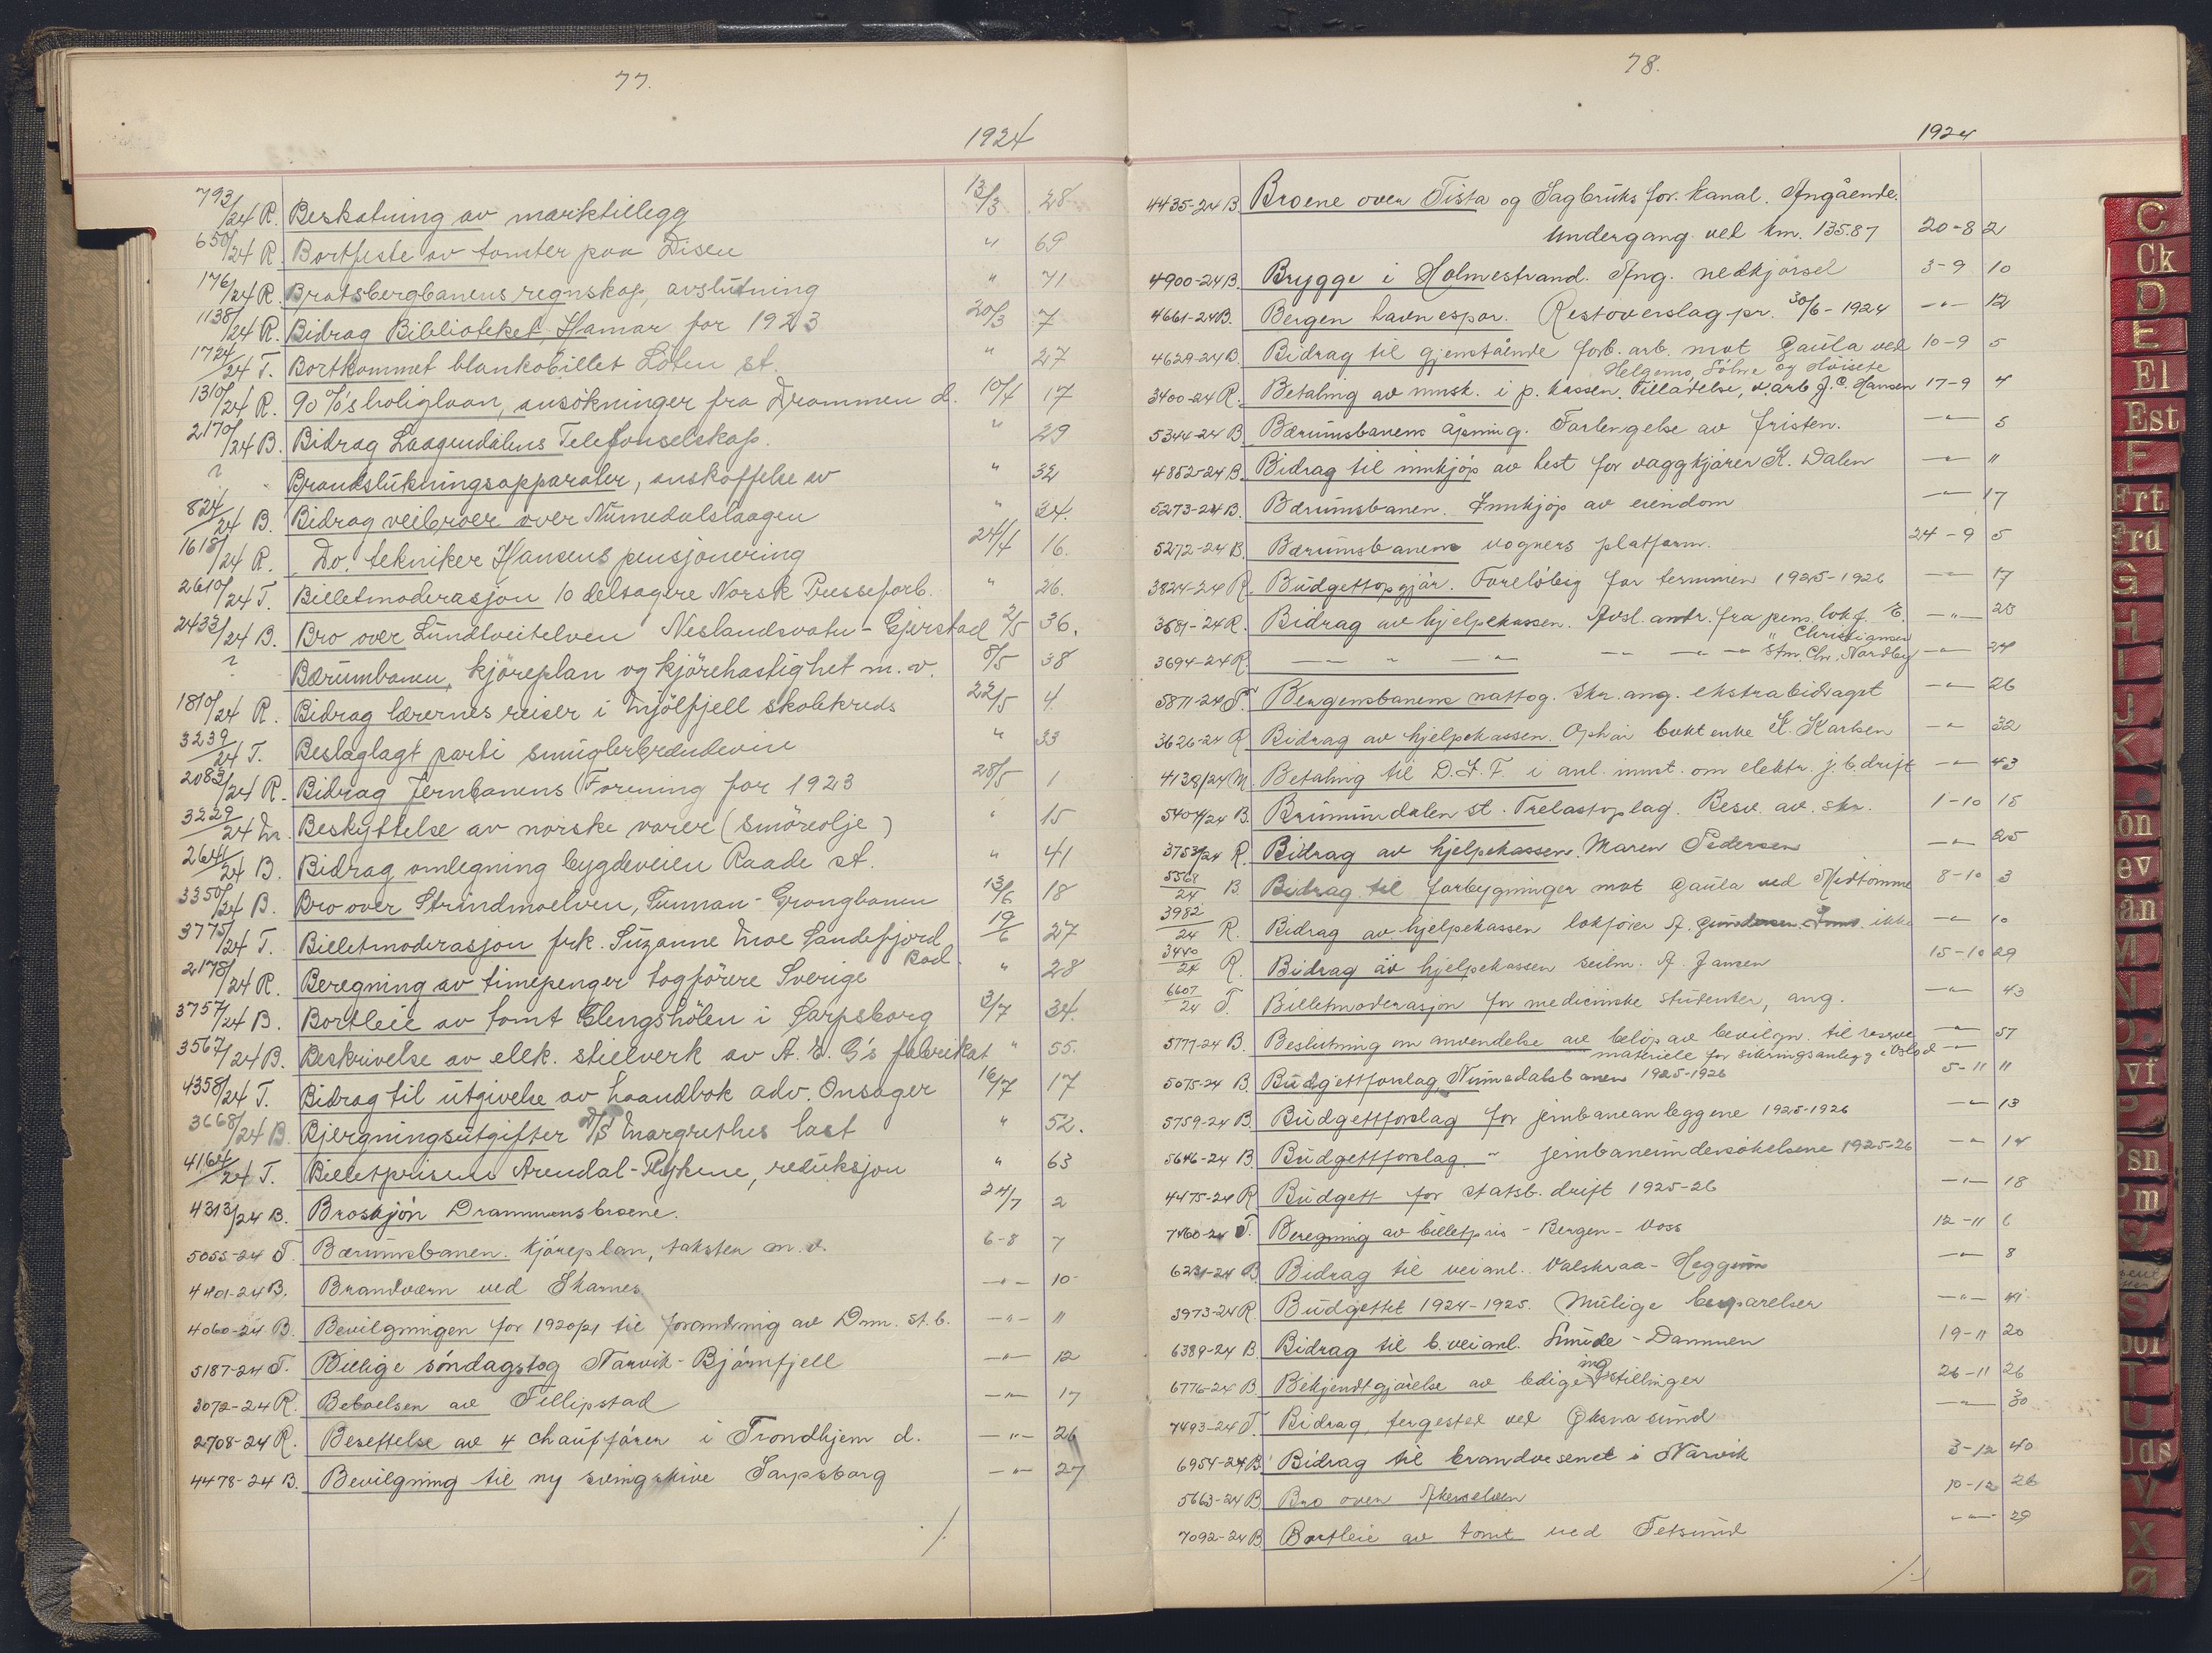 77.
1924
793/24 R. Beskatning av marktillegg 13/3 28
650/24 R. Bortfeste av tomter paa Disen " 69
176/24 R. Bratsbergbanens regnskap, avslutning " 71
1138/24 R. Bidrag Biblioteket, Hamar for 1923 20/3 7
1724/24 T. Bortkommet blankobillet Löten st. " 27
1310/24 R. 90 %'s boliglaan, ansökninger fra Drammen d. 10/4 17
2170/24 B. Bidrag Laagendalens Telefonselskap. " 29
? Brandslukningsapparater, anskaffelse av " 32
824/24 B. Bidrag veibroer over Numedalslaagen " 34.
1618/24 R. Do. tekniker Hansens pensjonering 24/4 16.
2610/24 T. Billetmoderasjon 10 delsagere Norsk Presseforb. " 26.
2433/24 B. Bro over Lundtveitelven Neslandsvatn - Gjerstad 2/5 36.
? Bærumbanen, kjöreplan og kjörehastighet m. v. 8/5 38
1810/24 R. Bidrag lærernes reiser i Mjölfjell skolekreds 22/5 4.
3239/24 T. Beslaglagt parti smuglerbrændevin " 33
2083/24 R. Bidrag Jernbanens Forening for 1923 28/5 1
3229/24 M. Beskyttelse av norske varer (smöreolje) " 15
2644/24 B. Bidrag omlegning bygdeveien Raade st. " 41
3350/24 B. Bro over Strindmoelven, Sunnan - Grongbanen 13/6 18
3775/24 T. Billetmoderasjon frk. Suzanne Moe Sandefjord 19/6 27
Bad.
2178/24 R. Beregning av timepenger togförere Sverige " 28
3757/24 B. Bortleie av tomt Glengshölen i Sarpsborg 3/7 34.
3567/24 B. Beskrivelse av elek. stielverk av A. E. G's fabrikat " 55.
4358/24 T. Bidrag til utgivelse av haandbok adv. Onsager 16/7 17
3668/24 B. Bjergningsutgifter D/S Margrethes last " 52.
4164/24 T. Billetprisene Arendal - Rykene, reduksjon " 63
4313/24 B. Broskjön Drammensbroene. 24/7 2
5055-24 T. Bærumsbanen. Kjöreplan, takster m. v. 6-8 7
4401-24 B. Brandværn ved Skarnes -"- 10
4060-24 B. Bevilgningen for 1920/21 til forandring av Dmn. st. b. -"- 11
5187-24 T. Billige söndagstog Narvik - Bjørnfjell -"- 12
3072-24 R. Beboelsen av Fillipstad -"- 17
2708-24 R. Besettelse av 4 chauffører i Trondhjem d. -"- 26
4478-24 B. Bevilgning til ny svingskive Sarpsborg -"- 27
./.
78.
1924
4435-24 B. Broene over Tista og Sagbruks for. kanal. Angående.
undergang ved km. 135.87 20-8 2
4900-24 B. Brygge i Holmestrand. Ang. nedkjørsel 3-9 10
4661-24 B. Bergen havnespor. Restoverslag pr. 30/6-1924 -"- 12
4629-24 B. Bidrag til gjenstående forb. arb. mot Gaula ved 10-9 5
Helgemo, Söhne og Höisete
3400-24 R. Betaling av munsk. i p. kassen. Tillatelse, v. arb J. C. Hansen 17-9 4
5344-24 B. Bærumsbanens åpning. Forlengelse av fristen. -"- 5
4852-24 B. Bidrag til innkjøp av hest for vaggkjører K. Dalen -"- "
5273-24 B. Bærumsbanen. Innkjøp av eiendom -"- 17
5272-24 B. Bærumsbanens vogners platform. 24-9 5
3824-24 R. Budgettopgjør. Foreløbig for terminen 1925-1926 -"- 17
3681-24 R. Bidrag av hjelpekassen. Avsl. andr. fra pens. lokf. E. -"- 23
Christiansen
3694-24 R. -"- " -"- " -"- -"- Stm. Chr. Nordby -"- 24
5871-24 T. Bergensbanens nattog. Skr. ang. ekstrabidraget -"- 26
3626-24 R. Bidrag av hjelpekassen. Ophør bokt enke K. Karlsen -"- 32
4139/24 M. Betaling til D. I. F. i anl. innst. om elektr. j. b. drift -"- 43
5404/24 B. Brumunddalen st. Trelastoplag. Besv. av. skr. 1-10 15
3753/24 R. Bidrag av hjelpekassen. Maren Pedersen -"- 25
5568/24 B. Bidrag til forbygninger mot Gaula ved Midtømme 8-10 3
3982/24 R. Bidrag av hjelpekassen lokfører A. Gundersen ikke -"- 10
3440/24 R. Bidrag av hjelpekassen seilm. A. Jansen 15-10 29
6607/24 T. Billetmoderasjon for medicinske studenter, ang. -"- 43
5777-24 B. Beslutning om anvendelse av beløp av bevilgn. til reserve -"- 57
materiell for sikringsanlegg i Oslo d -"-
5075-24 B. Budgettforslag Numedalsbanen 1925-1926 5-11 11
5759-24 B. Budgettforslag for jernbaneanleggene 1925-1926 -"- 13
5646-24 B. Budgettforslag " jernbaneundersøkelsene 1925-26 -"- 14
4475-24 R. Budgett for statsb. drift 1925-26 -"- 18
7460-24 T. Beregning av billetpris - Bergen - Voss 12-11 6
6231-24 B. Bidrag til veianl. Valskraa - Heggem -"- 8
3973-24 R. Budgettet 1924-1925. Mulige besparelser -"- 41
6389-24 B. Bidrag til b. veianl. Smide - Dammen 19-11 20
6776-24 B. Bekjendtgjørelse av ledige stillinger 26-11 26
7493-24 T. Bidrag, fergested ved Øksnasund -"- 30
6954-24 B. Bidrag til brandvesenet i Narvik 3-12 40
5663-24 B. Bro over Akerselven 10-12 26
7092-24 B. Bortleie av tomt ved Fetsund -"- 29
./.
C
Ck
D
E
El
Est
F
Frt
Frd
G
H
I
J
K
L
M
N
O
P
S
T
U
Uds
V
X
Ø